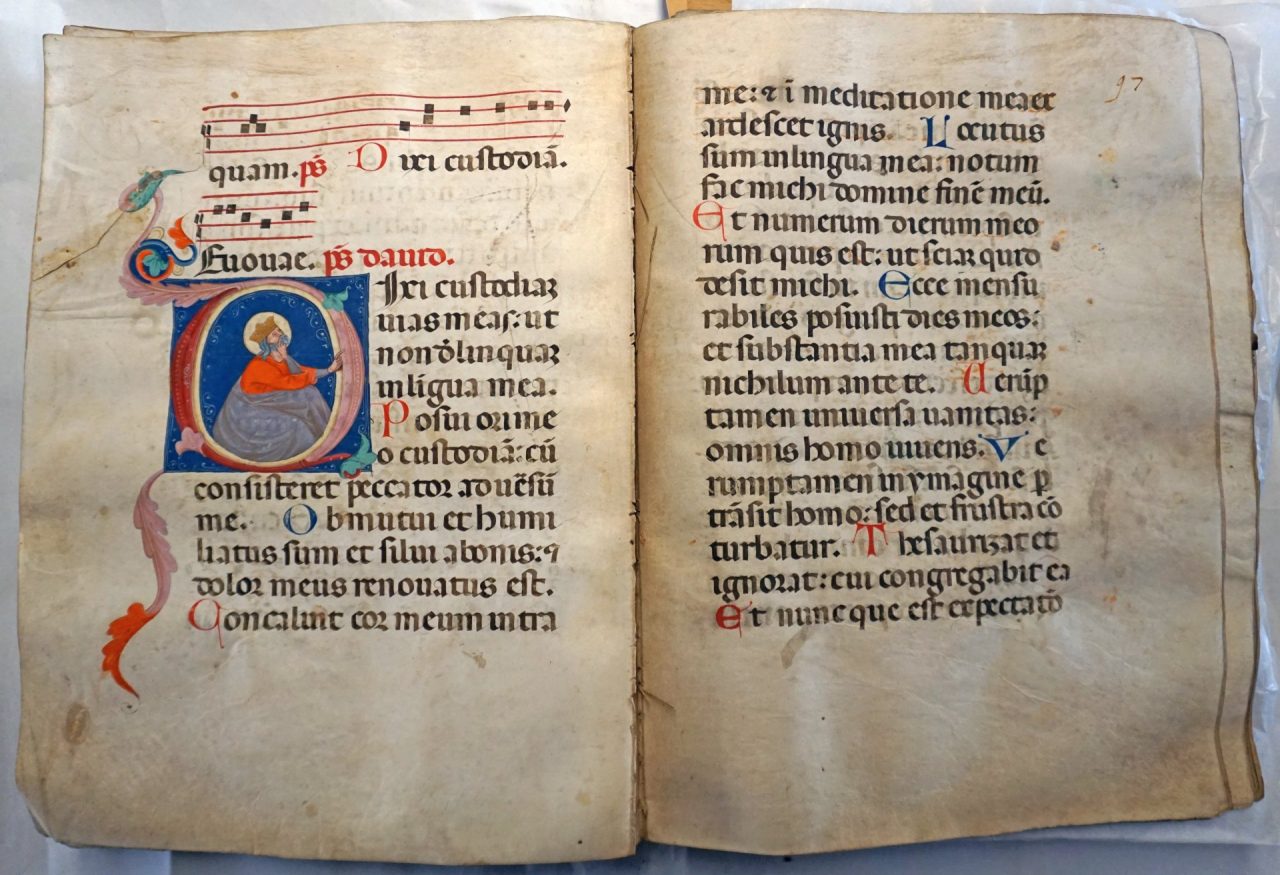 quam. p̄s Dixi custodiā.
Euouae. p̄s dauid.
Dixi custodiaƺ
uias meas: ut
non dēlinquaƺ
in līgua mea.
Posui ori me
o custodiā: cū
consisteret peccator aduēsū
me. Obmutui et humi
liatus sum et silui a bonis: ⁊
dolor meus renouatus est.
Concaluit cor meum intra
97
me: ⁊ ī meditatione mea ex
ardescet ignis. Locutus
sum in lingua mea: notum
fac michi domine finē meū.
Et numerum dierum meo
rum quis est: ut sciaƺ quid
desit michi. Ecce mensu
rabiles posuisti dies meos:
et substantia mea tanquaƺ
nichilum ante te. Uerūp
tamen uniuersa uanitas:
omnis homo uiuens. Ve
rumptamen in ymagine ꝑ
trāsit homo: sed et frustra cō
turbatur. Thesaurizat et
ignorat: cui congregabit ea
Et nunc que est expectatō